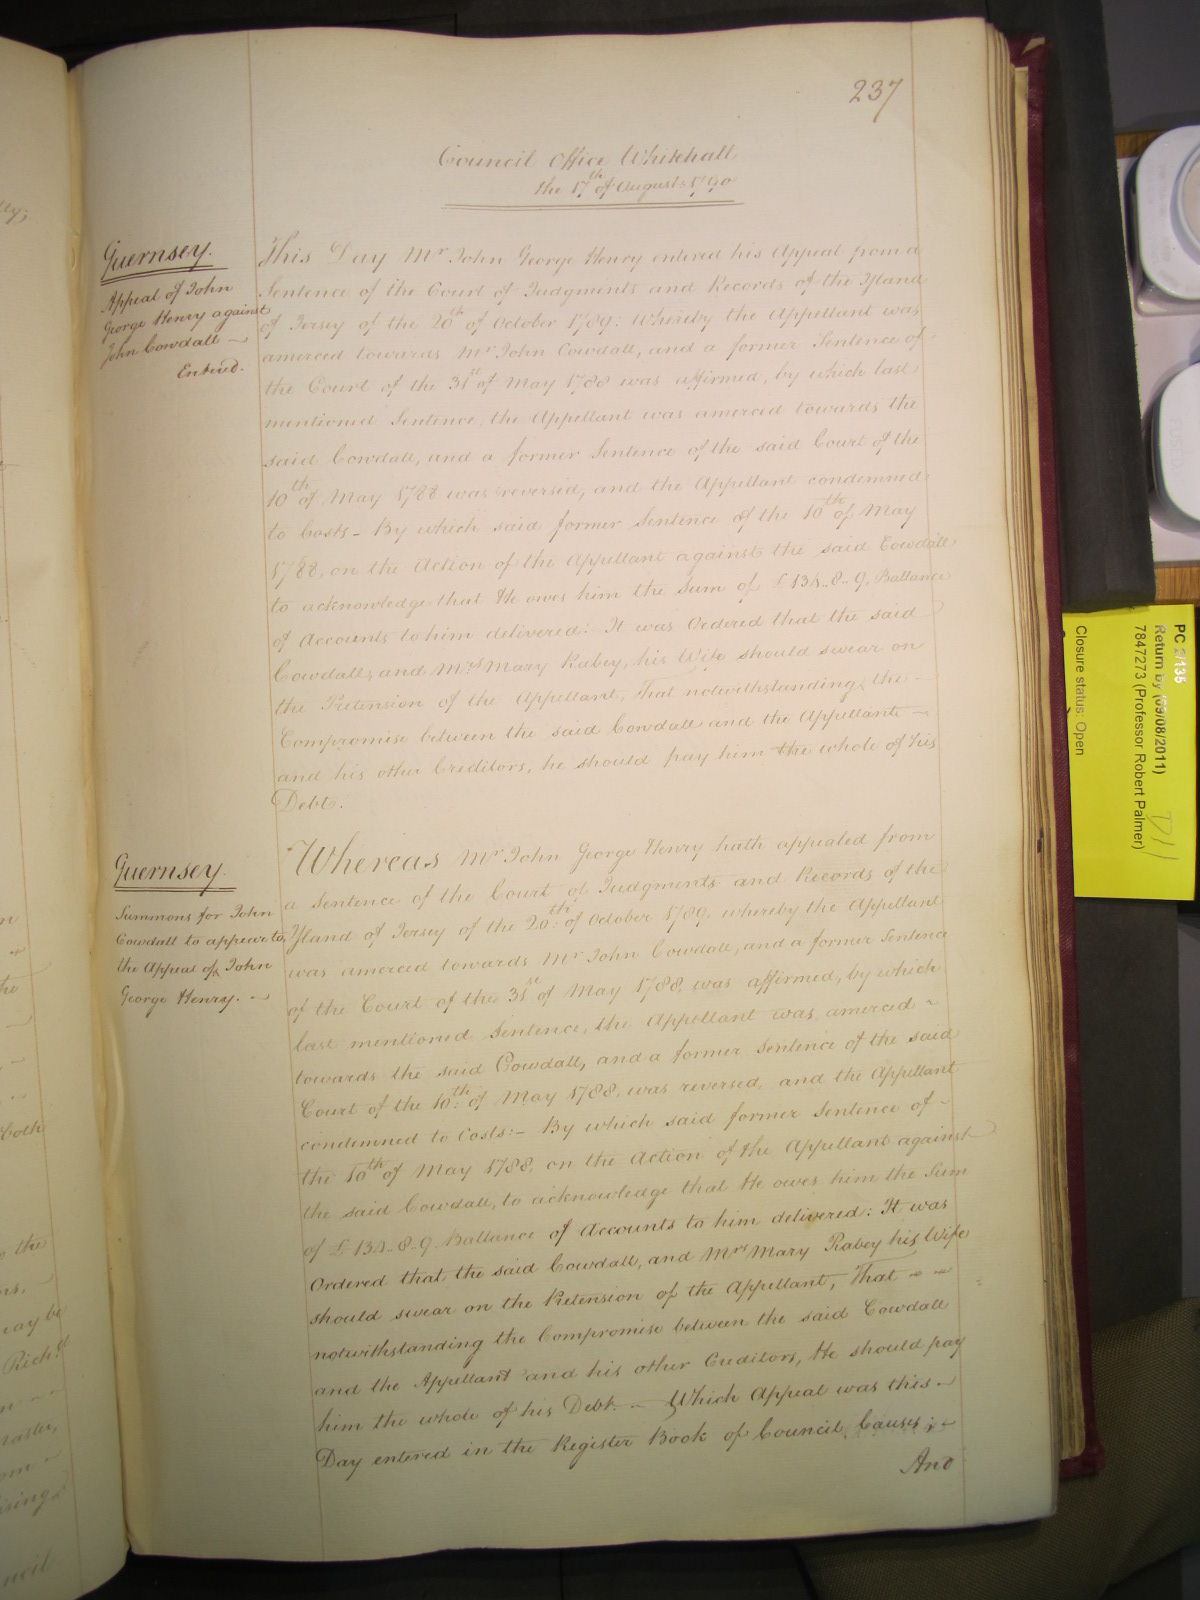 237
Council Office Whitehall
the 17th of August 1790
Guernsey.
Appeal of John
George Henry against
John Cowdall —
Entred.
This Day Mr John George Henry entered his Appeal from a
Sentence of the Court of Judgments and Records of the Island
of Jersey of the 20th of October 1789: Whereby the Appellant was
amerced towards Mr John Cowdall, and a former Sentence of
the Court of the 31st of May 1788 was affirmed, by which last
mentioned Sentence, the Appellant was amerced towards the
said Cowdall, and a former Sentence of the said Court of the
10th of May 1788 was reversed, and the Appellant condemned
to Costs - By which said former Sentence of the 10th of May
1788, on the Action of the Appellant against the said Cowdall
to acknowledge that He owes him the Sum of £134..8..9. Ballance
of Accounts to him delivered: It was Ordered that the said
Cowdall, and Mrs Mary Rabey, his Wife should swear on
the Pretension of the Appellant, That notwithstanding the —
Compromise between the said Cowdall and the Appellant —
and his other Creditors, he should pay him the whole of his
Debt.
Guernsey.
Summons for John
Cowdall to appear to
the Appeal of John
George Henry. —
Whereas Mr John George Henry hath appealed from
a Sentence of the Court of Judgments and Records of the
Island of Jersey of the 20th of October 1789, whereby the Appellant
was amerced towards Mr John Cowdall, and a former Sentence
of the Court of the 31st of May 1788, was affirmed, by which
last mentioned Sentence, the Appellant was amerced ~
towards the said Cowdall, and a former Sentence of the said
Court of the 10th of May 1788, was reversed, and the Appellant
condemned to Costs:— By which said former Sentence of -
the 10th of May 1788, on the Action of the Appellant against
the said Cowdall, to acknowledge that He owes him the Sum
of £134-8-9 Ballance of Accounts to him delivered: It was
Ordered that the said Cowdall, and Mrs Mary Rabey his Wife
should swear on the Pretension of the Appellant, That — —
notwithstanding the Compromise between the said Cowdall
and the Appellant and his other Creditors, He should pay
him the whole of his Debt. — Which Appeal was this —
Day entered in the Register Book of Council Causes; —
And
PC 2/135
Return by (09/08/2011)
7847273 (Professor Robert Palmer)
Closure status: Open
D11
both
the
may be
Rich'd